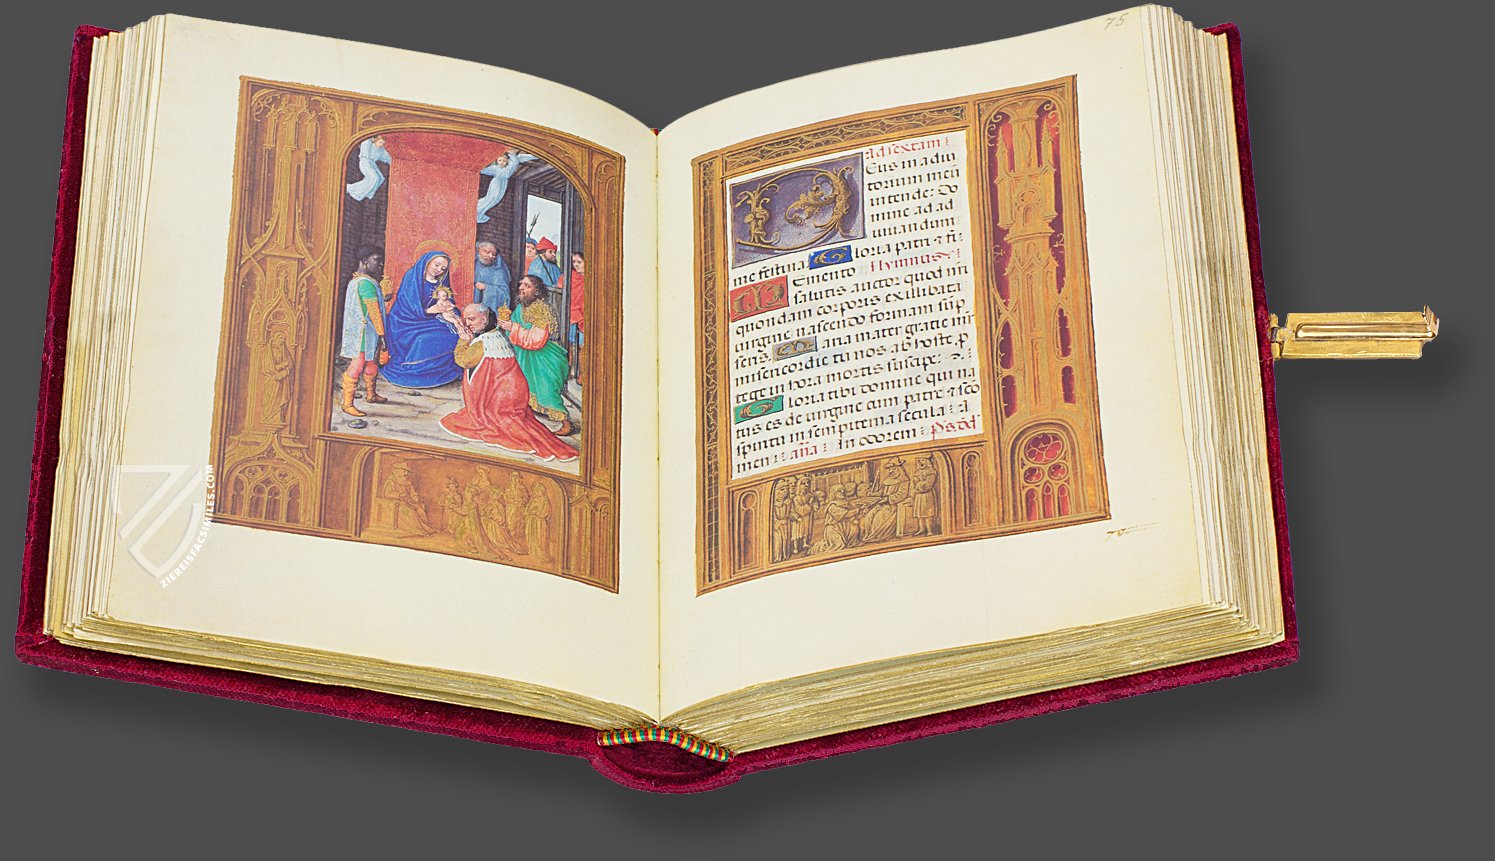 75
ad sextam
Eus in adiu
torium meū
intende: Do
mine ad ad
iuuandum
me festina
Gloria patri ⁊ fi:
Emento Hymnus
salutis auctor quod nr̄i
quondam corporis ex illibata
uirgine nascendo formam sūp
seris. Maria mater gratie m̄r
misericordie tu nos ab hoste p̄
tege in hora mortis suscipe:
Gloria tibi domine qui na
tus es de uirgine cum patre ⁊ sc̄o
spiritu in sempiterna secula: A
men: an̄a In odorem
ZIEREISFACSIMILES.COM